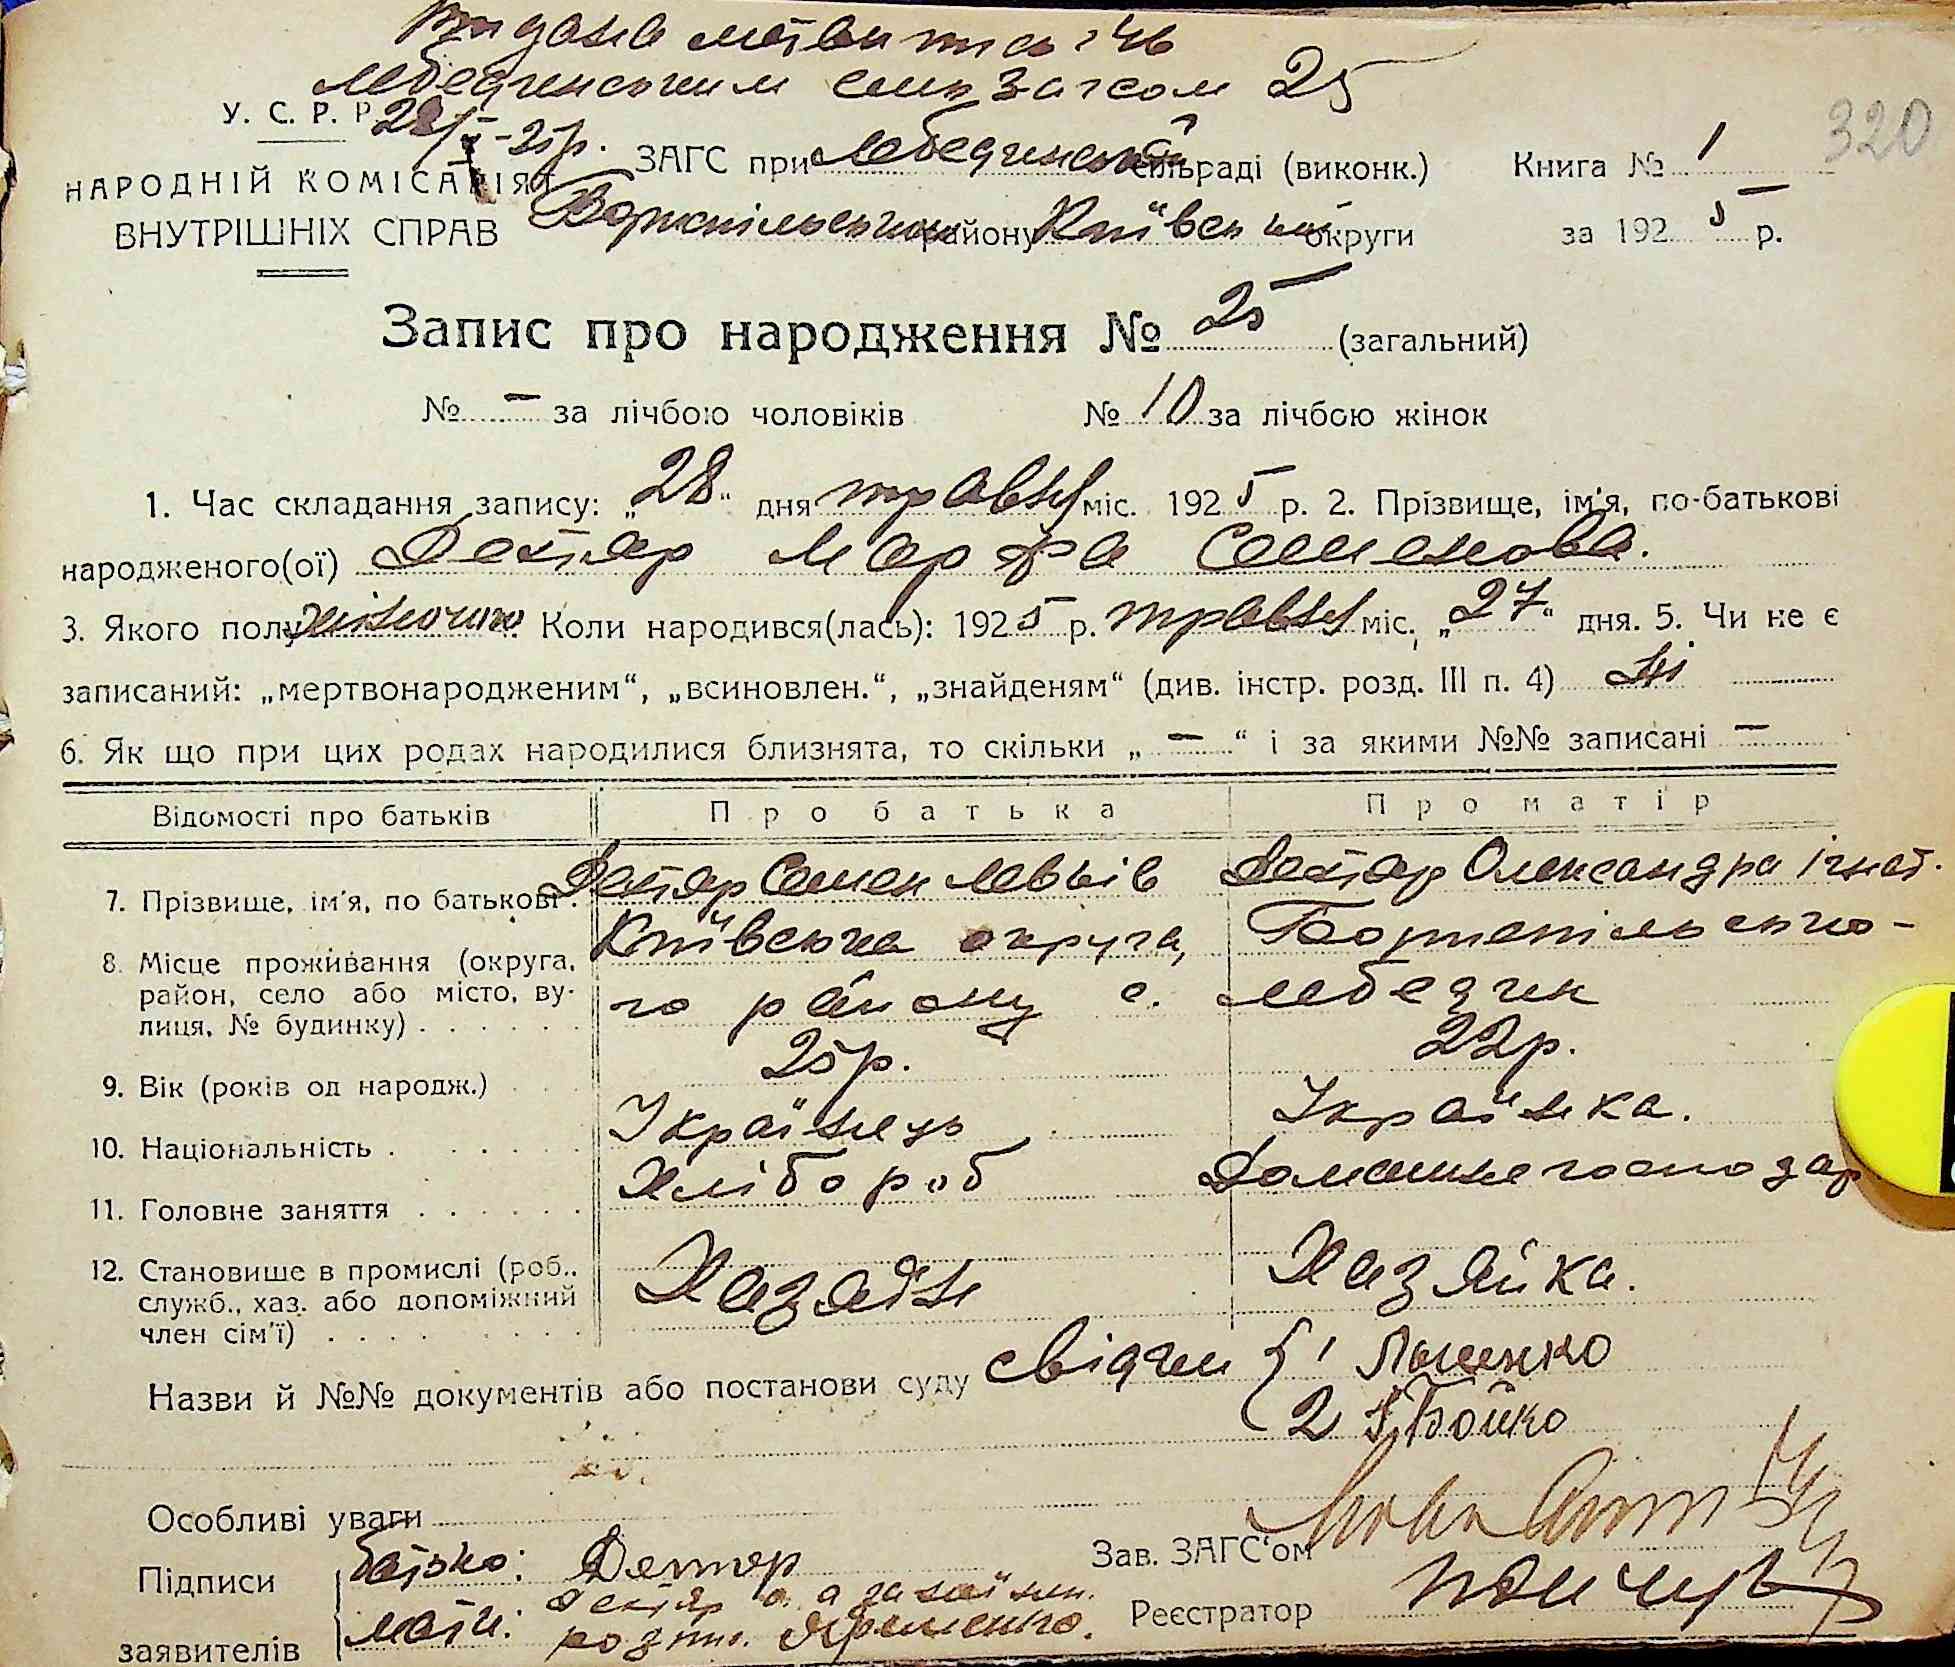 видана
лебединським сільзагсом 25
У. С. Р. Р. 28/V-25р.
320
ЗАГС при Лебединській сільраді (виконк.) Книга № 1
НАРОДНІЙ КОМІСАРІЯТ
ВНУТРІШНІХ СПРАВ
Бориспільського району Київської округи за 1925 р.
Запис про народження № 25 (загальний)
№ — за лічбою чоловіків № 10 за лічбою жінок
1. Час складання запису: „28“ дня травня міс. 1925 р. 2. Прізвище, ім'я, по-батькові
народженого(ої) Дехтяр Марфа Семенова.
3. Якого полу жіночого. Коли народився(лась): 1925 р. травня міс. „27“ дня. 5. Чи не є
записаний: „мертвонародженим“, „всиновлен.“, „знайденям“ (див. інстр. розд. III п. 4) ні
6. Як що при цих родах народилися близнята, то скільки „—“ і за якими №№ записані —
Відомості про батьків Про батька Про матір
7. Прізвище, ім'я, по батькові. Дехтяр Семен Левків Дехтяр Олександра Ігнат.
8. Місце проживання (округа, Київська округа, Бориспільсько-
район, село або місто, ву- го району с. Лебедин
лиця, № будинку)
9. Вік (років од народж.) 25р. 22р.
10. Національність Українець Українка.
11. Головне заняття Хлібороб Домашнє господар
12. Становище в промислі (роб., Хазяїн Хазяйка.
служб., хаз. або допоміжний
член сім'ї)
Назви й №№ документів або постанови суду свідки { 1
2 Бойко
Особливі уваги
Підписи батько: Дехтяр Зав. ЗАГС'ом
заявителів мати: Дехтяр
розпис. Яременко. Реєстратор